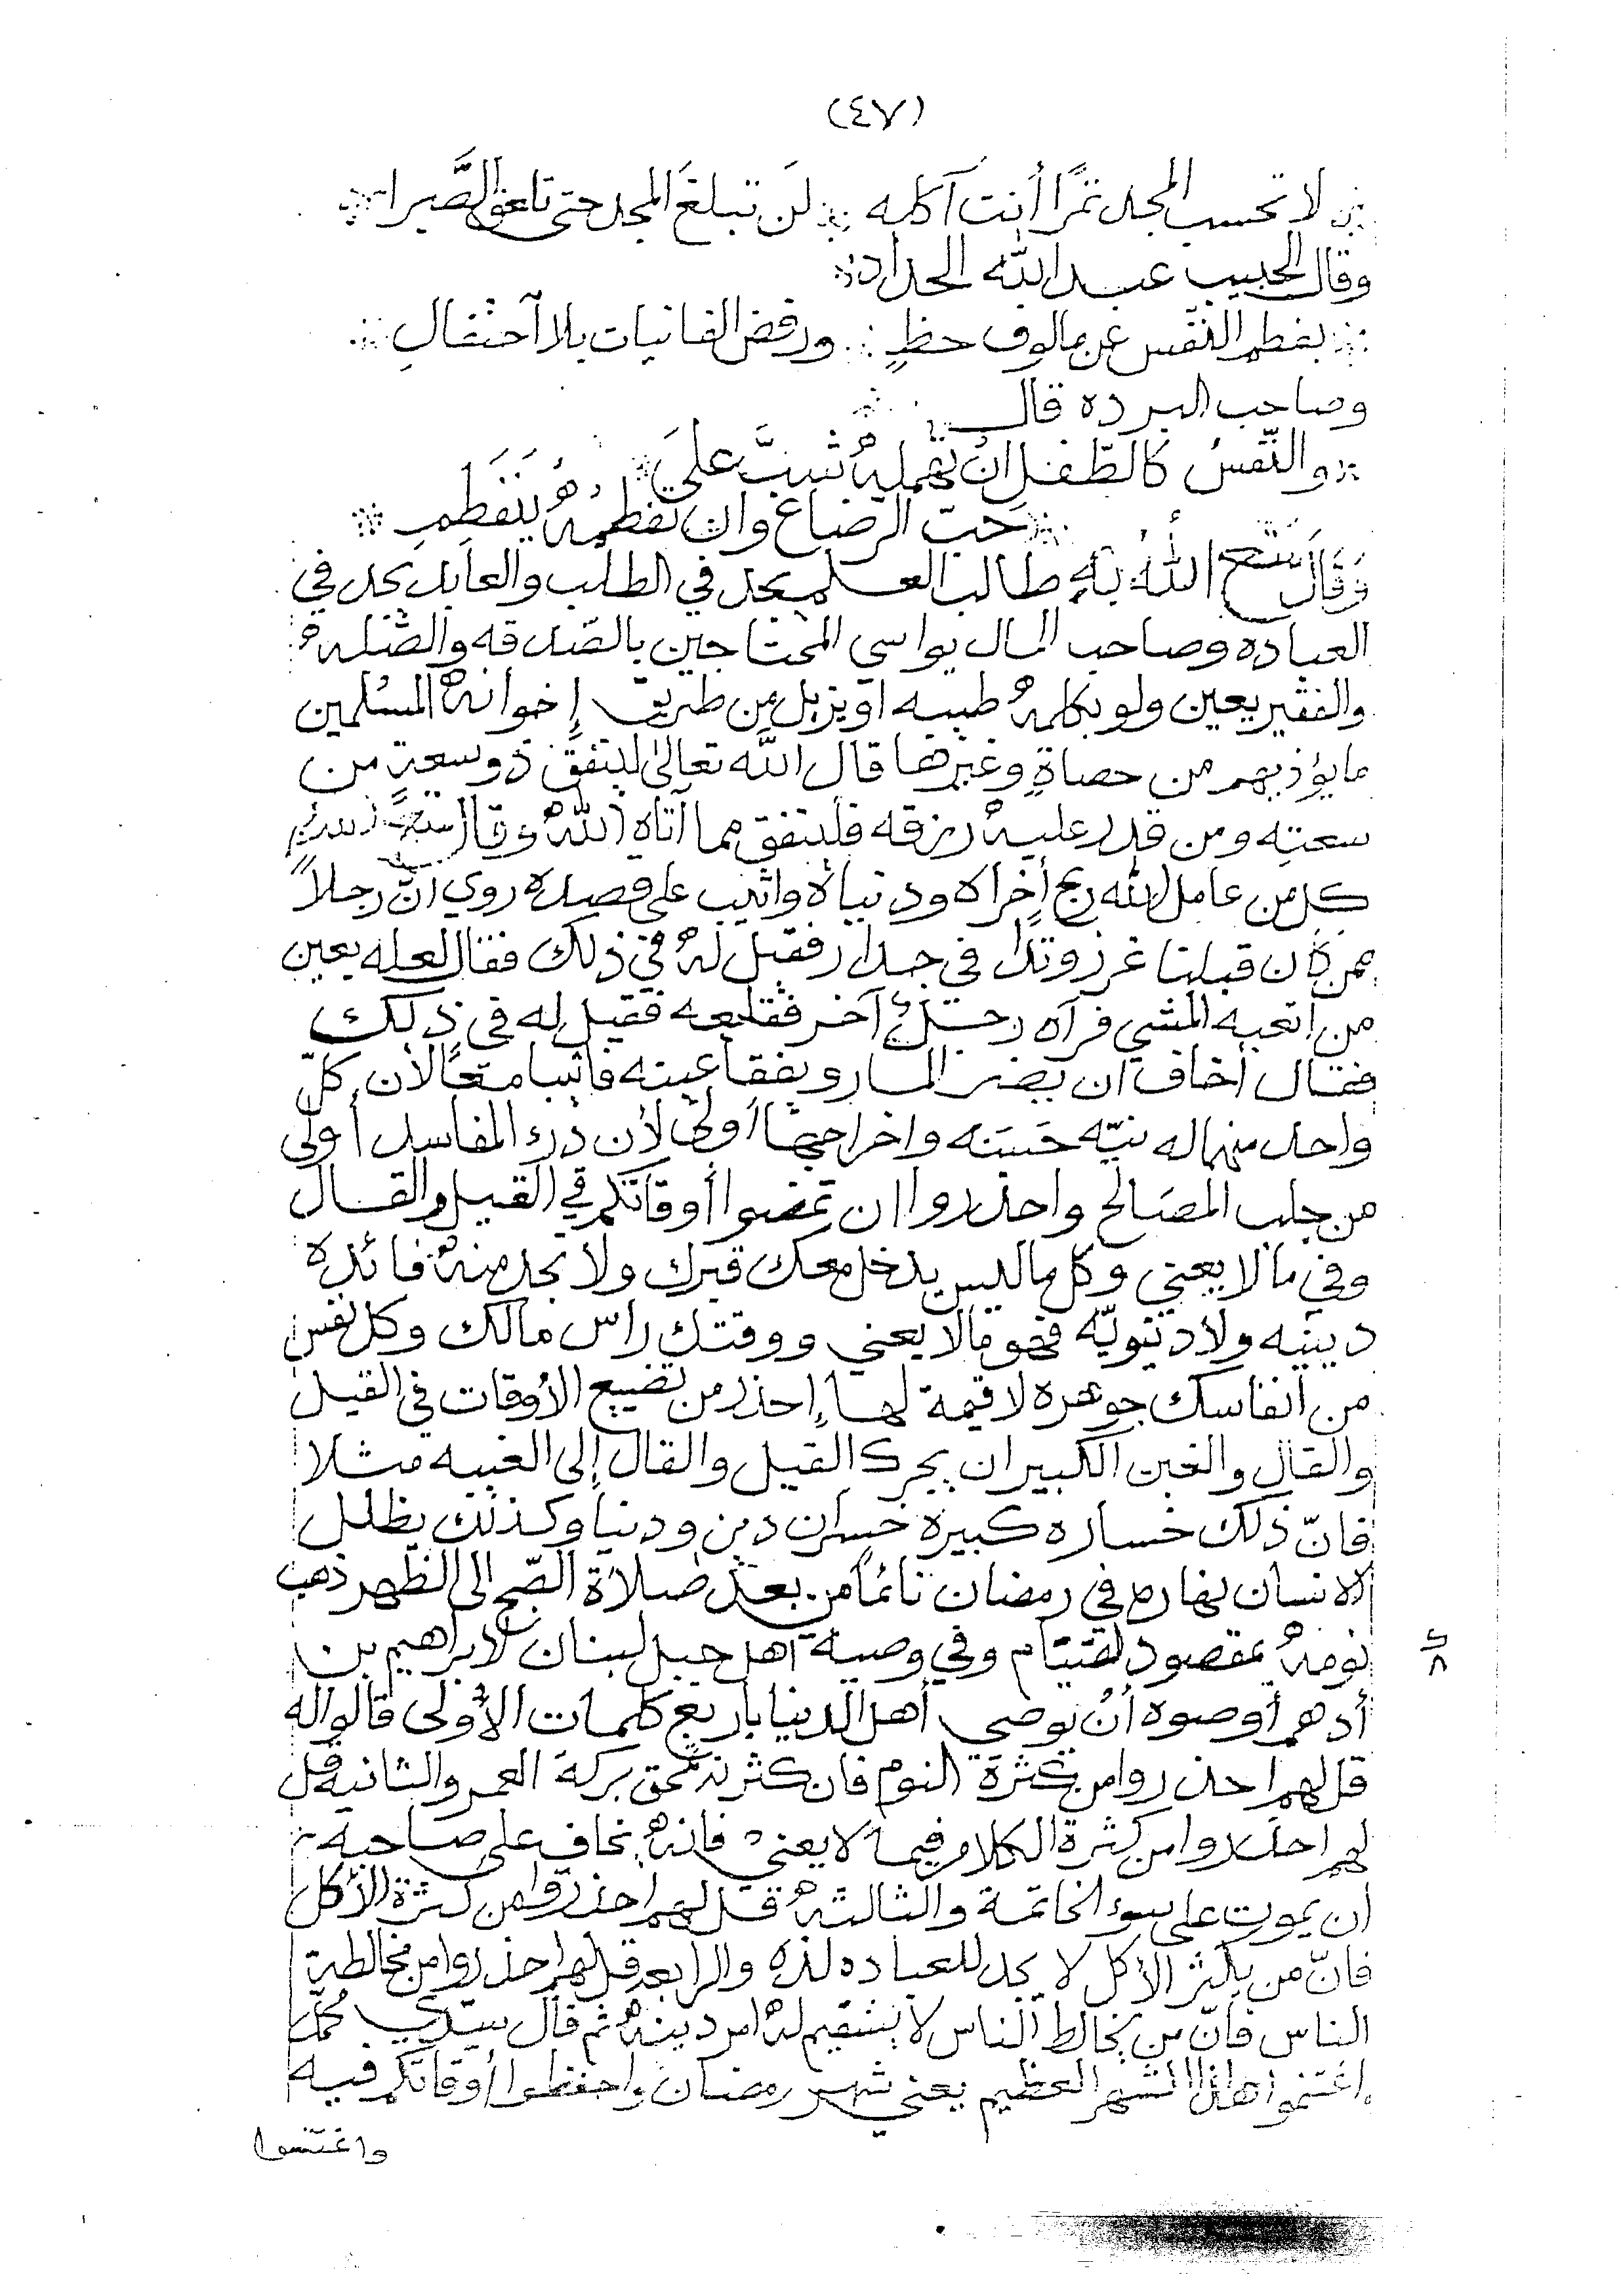 (٤٧)
لا تحسب المجد تمرًا أنت آكله لن تبلغَ المجد حتى تلعق الصَّبرا
وقال الحبيب عبد الله الحداد
بفطم النفس عن مألوف حظٍ ورفض الفانيات بلا آحتفالِ
وصاحب البرده قال
والنّفسُ كالطّفل ان تهملهُ شبَّ على
حب الرضاع وان تفطمهُ ينفَطِمِ
وقال متع اللّٰه به طالب العلم يجد في الطلب والعابد يجد في
العباده وصاحب المال يواسي المحتاجين بالصّدقه والصّله
والفقير يعين ولو بكلمهُ طيبه او يزيل من طريق إخوانهُ المسُلمين
ما يؤذيهم من حصاةٍ وغيرها قال اللّه تعالىٰ لينفق ذو سعةٍ من
سعتِه ومن قدر عليهُ رزقه فلينفق مما آتاه اللّهُ وقال
كل من عامل اللّه ربح أخراه ودنياهُ واثيب على قصده روي انَّ رجلاً
ممن كان قبلنا غرز وتدًا في جدار فقيل لهُ في ذلك فقال لعله يعين
من اتعبه المشي فرآه رجلٌ آخر فقلعه فقيل له في ذلك
فقال أخاف ان يضر المار ويفقأ عينه فاثيبا معًا لأن كلّ
واحد منهما له نيّه حَسَنه واخراجهُا أولى لأن درء المفاسد أولى
من جلب المصَالح واحذروا ان تمضوا أوقاتكم في القيل والقال
وفي ما لا يعني وكل ما ليس يدخل معك قبرك ولا تجد منهُ فائده
دينيه ولا دنيويّه فهو ما لا يعني ووقتك راس مالك وكل نفس
من أنفاسك جوهره لا قيمة لها إحذر من تضييع الأوقات في القيل
والقال والغبن الكبير ان يجرك القيل والقال إلى الغيبه مثلا
فانّ ذلك خساره كبيرة خسران دين ودنيا وكذلك يظلل
الانسان نهاره في رمضان نائمًا من بعد صلاة الصّبح الى الظهر ذهب
نومهُ بمقصود الصيام وفي وصية أهل جبل لبنان لابراهيم بن
أدهم أوصوه أنُ يوصي أهل الدنيا باربع كلمات الأولى قالوا له
قل لهم احذروا من كثرَة النوم فان كثرته تمحق بركةَ العمر والثانيه قل
لهم احذروا من كثرة الكلام فيما لا يعني فانهُ يخاف على صاحبه
ان يموت على سوء الخاتمة والثالثهُ قل لهم احذروا من كثرة الأكل
فانّ من يكثر الأكل لا يجد للعباده لذه والرابعه قل لهم احذروا من مخالطة
الناس فانّ من يخالط الناس لا يستقيم لهُ امر دينهُ ثم قال سيّدي محمّد
اغتنموا هذا الشهر العظيم يعني شهر رمضان واحفظوا أوقاتكم فيه
واغتنموا